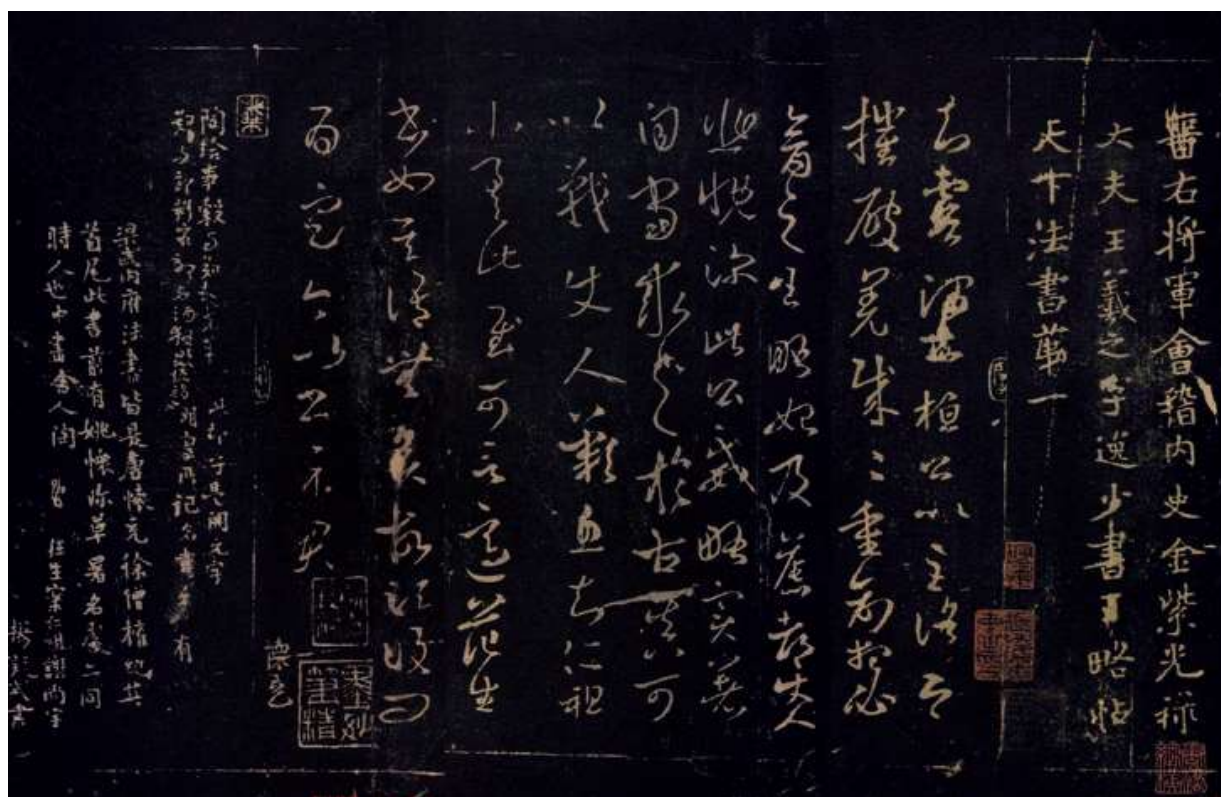 晉右將軍會稽內史金紫光祿
大夫王羲之字逸少書王略帖
天下法書第一
知虞帥書桓公以至洛今
摧破羌賊〻重命想必
禽之王略始及舊都使人
悲慨深此公威略實著
自當求之於古真可
以戰使人歎息知仁祖
小差此慰可言適范生
書如其語無異故須後問
為定今以書示君
懷充
陶給事穀
梁武內府法書皆是懷充徐僧權
首尾此書前有姚懷珍草署名處二同
時人也